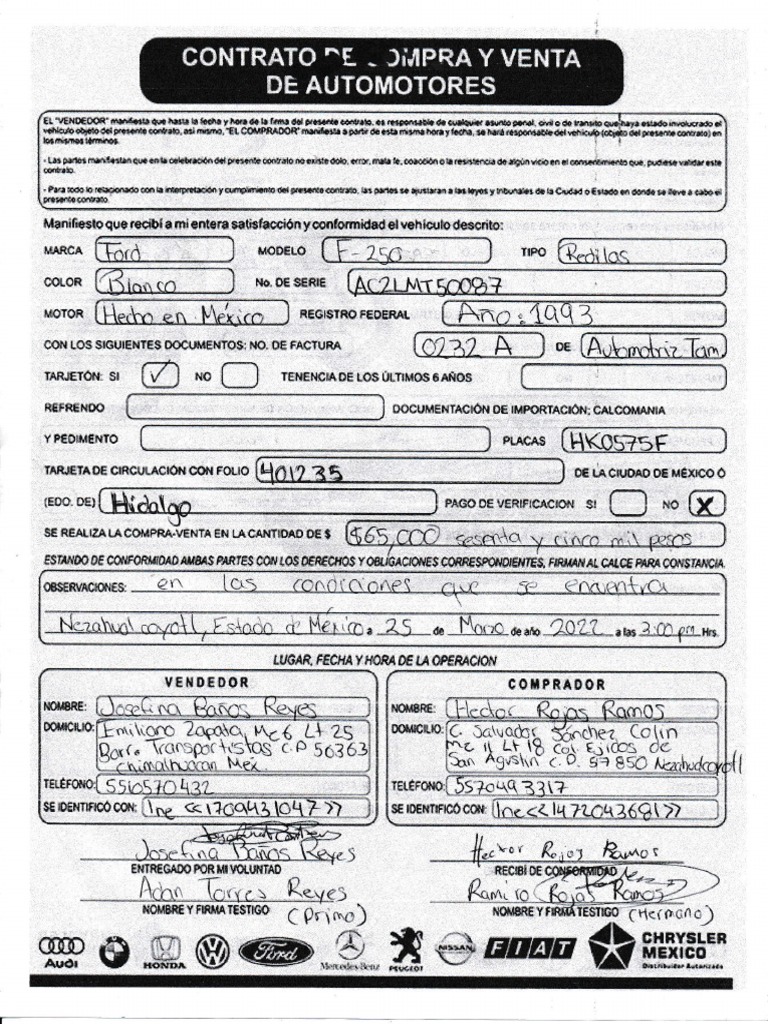 CONTRATO DE COMPRA Y VENTA
DE AUTOMOTORES
EL "VENDEDOR" manifiesta que hasta la fecha y hora de la firma del presente contrato, es responsable de cualquier asunto penal, civil o de transito que haya estado involucrado el
vehículo objeto del presente contrato, asi mismo, "EL COMPRADOR" manifiesta a partir de esta misma hora y fecha, se hará responsable del vehículo (objeto del presente contrato) en
los mismos términos.
- Las partes manifiestan que en la celebración del presente contrato no existe dolo, error, mala fe, coacción o la resistencia de algún vicio en el consentimiento que, pudiese validar este
contrato.
- Para todo lo relacionado con la interpretación y cumplimiento del presente contrato, las partes se ajustaran a las leyos y tribunales de la Ciudad o Estado en donde se lleve a cabo el
presente contrato.
Manifiesto que recibí a mi entera satisfacción y conformidad el vehículo descrito:
MARCA Ford MODELO F-250 TIPO Redilas
COLOR Blanco No. DE SERIE AC2LMT50087
MOTOR Hecho en México REGISTRO FEDERAL Año: 1993
CON LOS SIGUIENTES DOCUMENTOS: NO. DE FACTURA 0232 A DE Automotriz Tam.
TARJETÓN: SI ✓ NO TENENCIA DE LOS ÚLTIMOS 6 AÑOS
REFRENDO DOCUMENTACIÓN DE IMPORTACIÓN; CALCOMANIA
Y PEDIMENTO PLACAS HK0575F
TARJETA DE CIRCULACIÓN CON FOLIO 401235 DE LA CIUDAD DE MÉXICO Ó
(EDO. DE) Hidalgo PAGO DE VERIFICACION SI NO X
SE REALIZA LA COMPRA-VENTA EN LA CANTIDAD DE $ $65,000 sesenta y cinco mil pesos
ESTANDO DE CONFORMIDAD AMBAS PARTES CON LOS DERECHOS Y OBLIGACIONES CORRESPONDIENTES, FIRMAN AL CALCE PARA CONSTANCIA.
OBSERVACIONES: en las condiciones que se encuentra
Nezahualcoyotl, Estado de México a 25 de Marzo de año 2022 a las 3:00 pm Hrs.
LUGAR, FECHA Y HORA DE LA OPERACION
VENDEDOR
NOMBRE: Josefina Baños Reyes
DOMICILIO: Emiliano Zapata, Mc 6 Lt 25
Barr. Transportistas C.P 56363
Chimalhuacan Mex.
TELÉFONO: 5510570432
SE IDENTIFICÓ CON: Ine <<1709431047>>
COMPRADOR
NOMBRE: Hector Rojas Ramos
DOMICILIO: C. Salvador Sánchez Colin
Mz 11 Lt 18 Col. Ejidos de
San Agustin C.P. 57850 Nezahualcoyotl
TELÉFONO: 5570493317
SE IDENTIFICÓ CON: Ine<<21472043681>>
Josefina Baños Reyes
ENTREGADO POR MI VOLUNTAD
Adan Torres Reyes
NOMBRE Y FIRMA TESTIGO (Primo)
Hector Rojas Ramos
RECIBÍ DE CONFORMIDAD
Ramiro Rojas Ramos
NOMBRE Y FIRMA TESTIGO (Hermano)
Audi
BMW
HONDA
Ford
Mercedes-Benz
PEUGEOT
NISSAN
FIAT
CHRYSLER
MEXICO
Distribuidor Autorizado